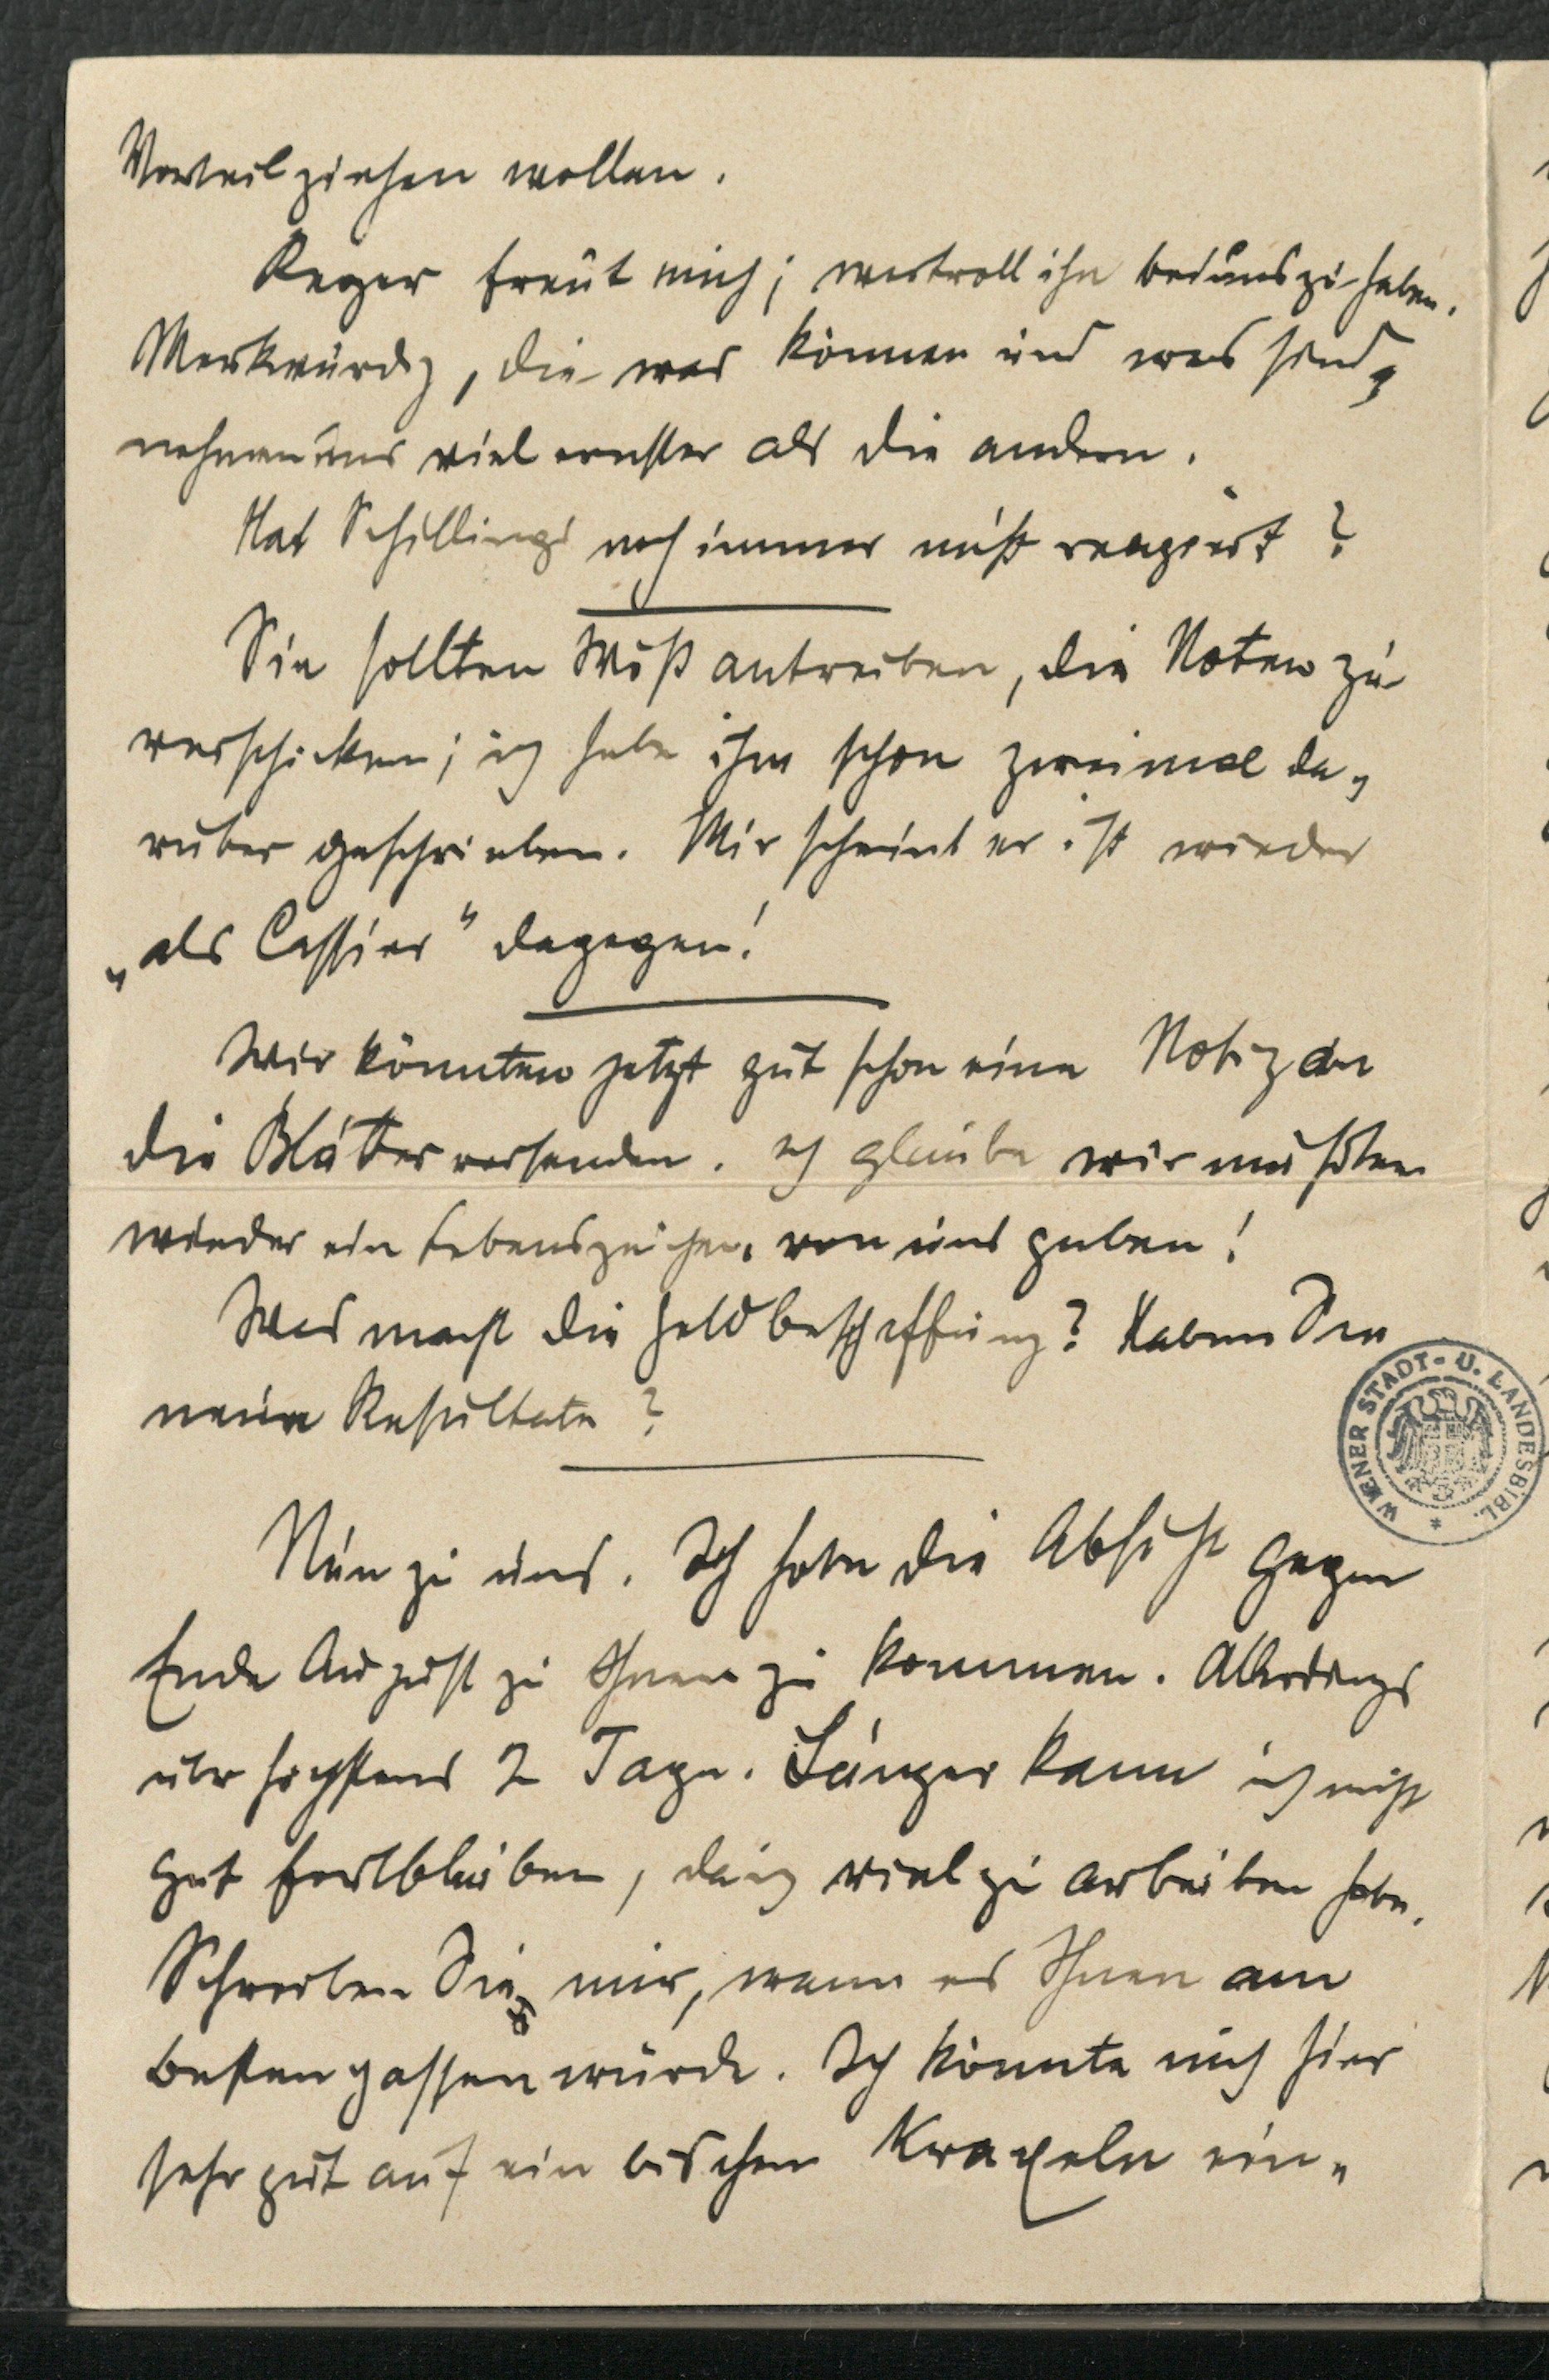 Vorteil ziehen wollen.
Reger freut mich; wertvoll ihn bei uns zu haben.
Merkwürdig, die was können und was sind,
nehmen uns viel ernster als die andern.
Hat Schillings noch immer nicht reagiert?
Sie sollten Wöß antreiben, die Noten zu
verschicken; ich habe ihm schon zweimal da-
rüber geschrieben. Mir scheint er ist wieder
„als Cassier" dagegen!
Wir könnten jetzt gut schon eine Notiz an
die Blätter versenden. Ich glaube wir müßten
wieder ein Lebenszeichen von uns geben!
Was macht die Geldbeschaffung? Haben Sie
neue Resultate?
Nun zu uns. Ich habe die Absicht gegen
Ende August zu Ihnen zu kommen. Allerdings
über höchstens 2 Tage. Länger kann ich nicht
gut fortbleiben, da ich viel zu arbeiten habe.
Schreiben Sie mir, wann es Ihnen am
besten passen würde. Ich könnte mich hier
sehr gut auf ein bischen Kraxeln ein-
WIENER STADT- U. LANDESBIBL.